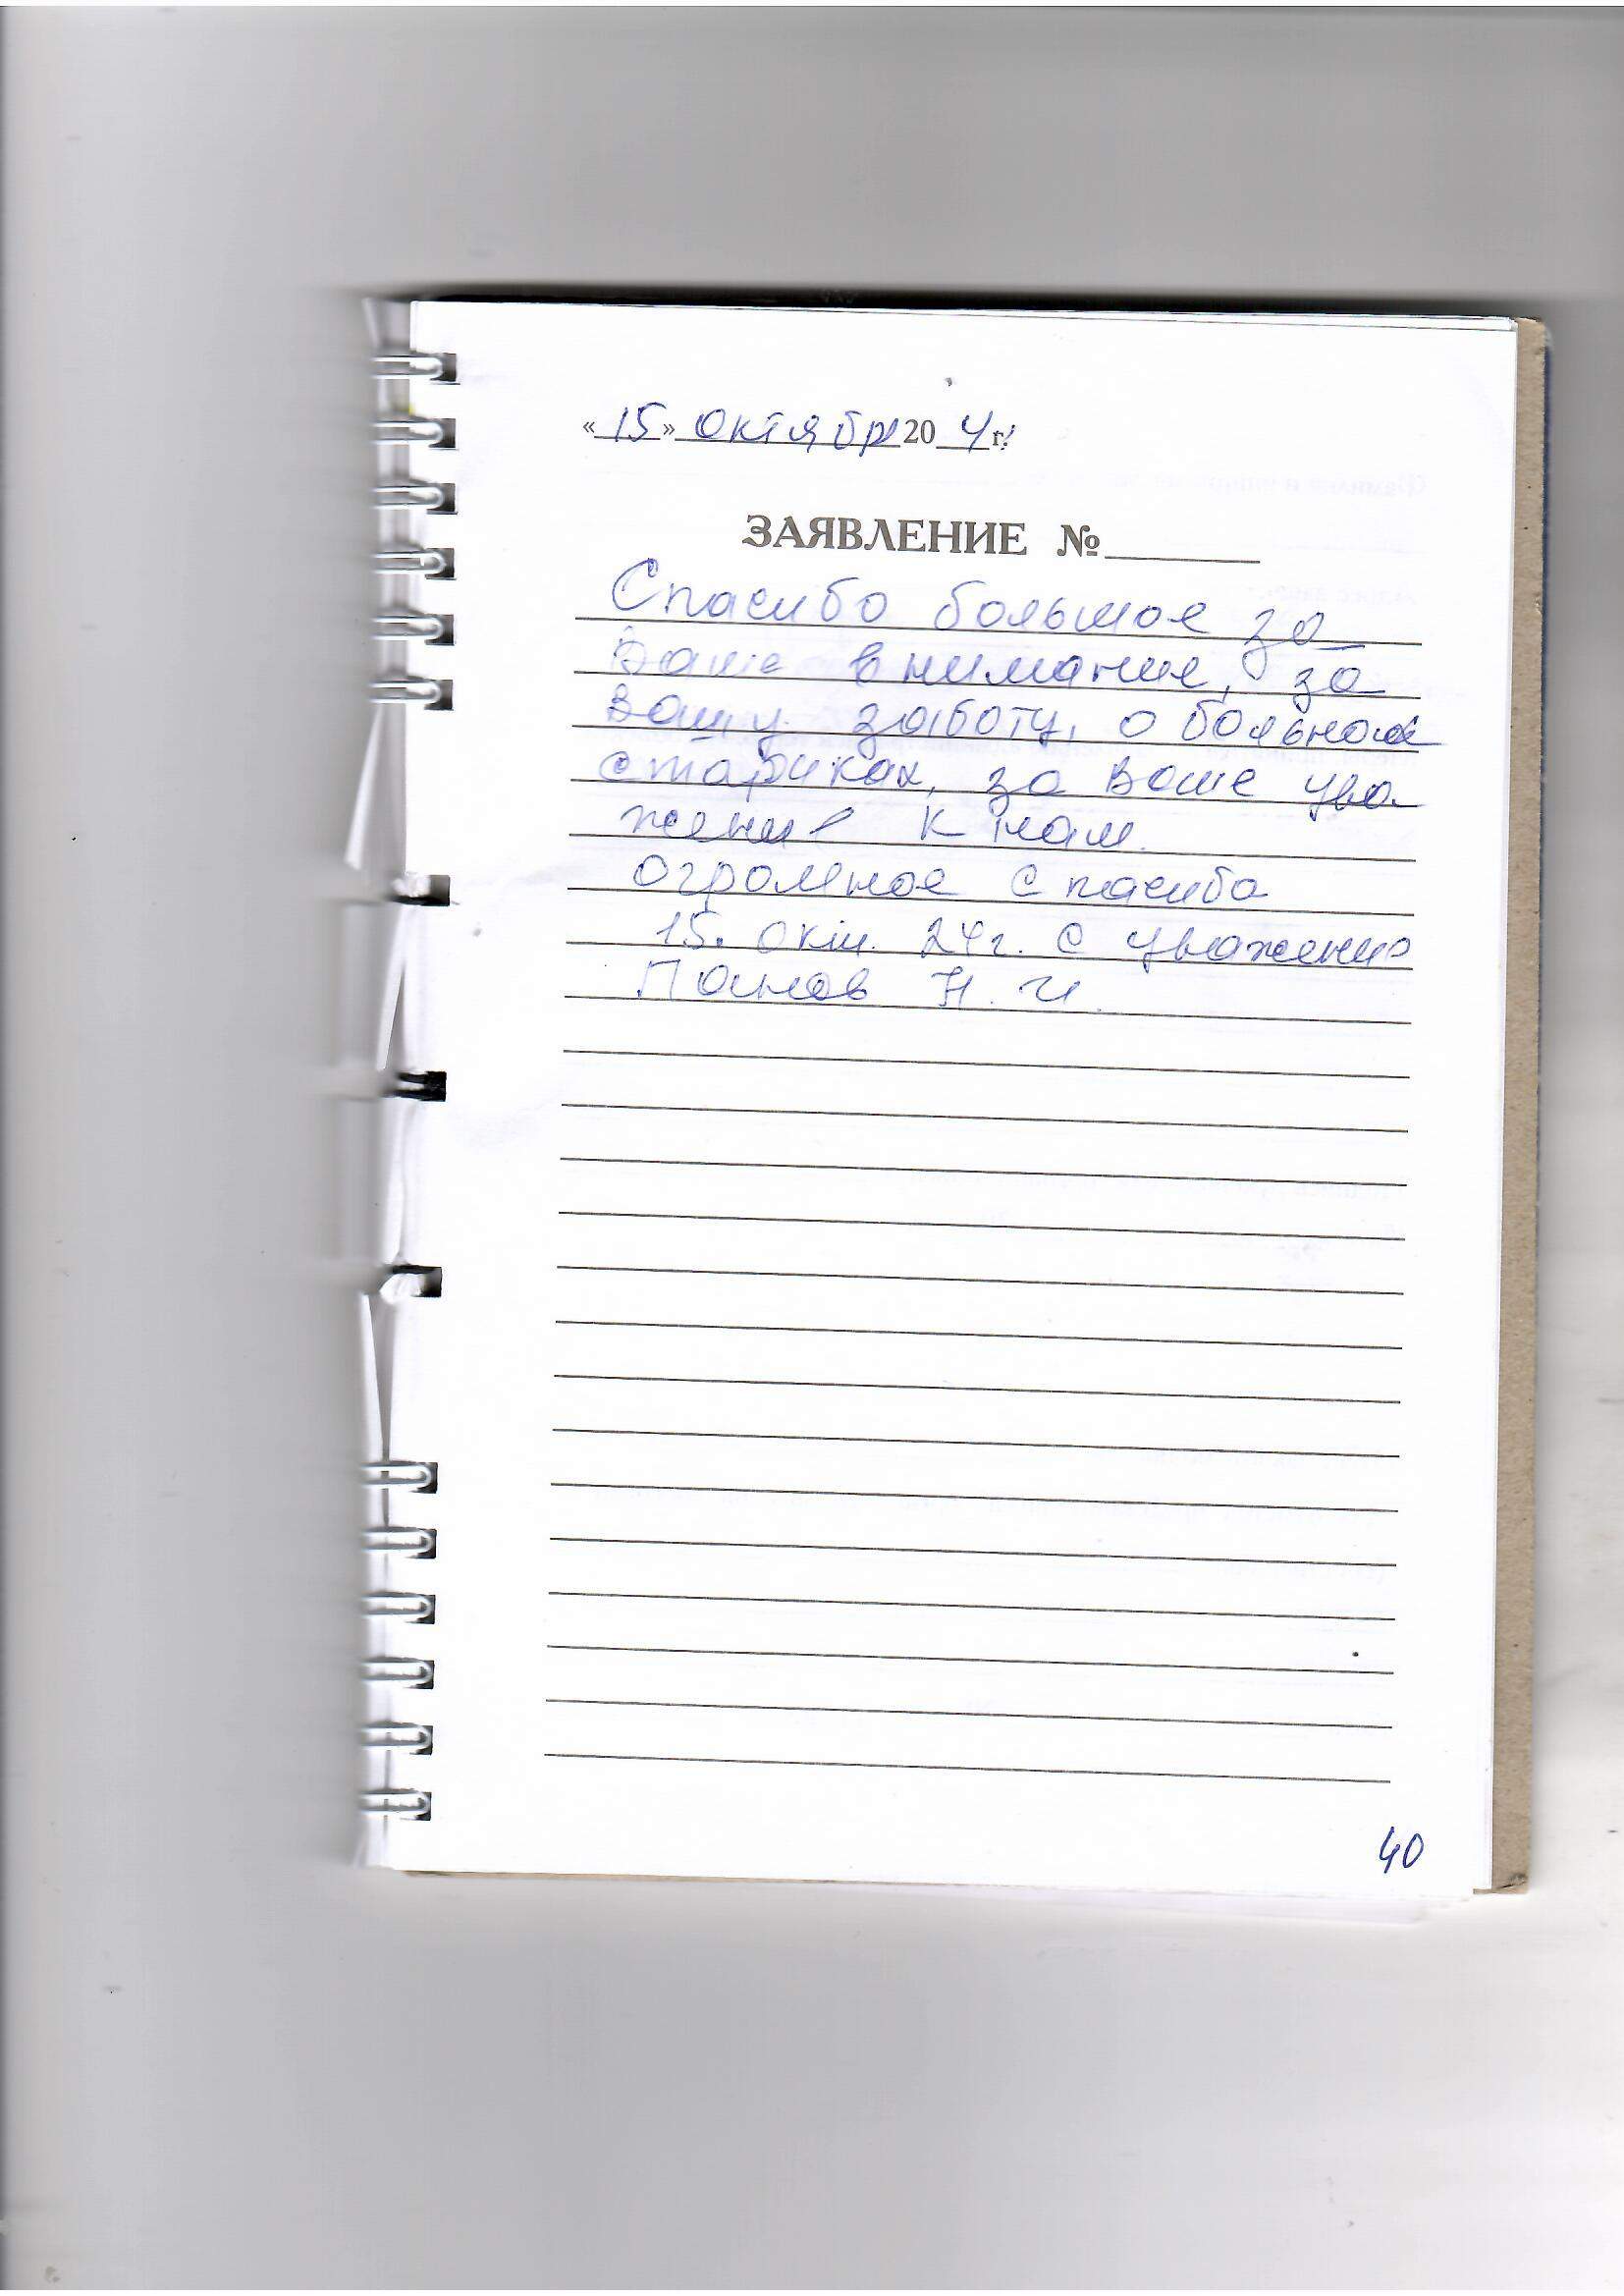 «15» октября 20 4 г.
ЗАЯВЛЕНИЕ №
Спасибо большое за
Ваше внимание, за
Вашу заботу, о больных
стариках, за Ваше ува
жение к нам.
огромное спасибо
15. окт. 24г. С уважение
Панов Н. И.
40